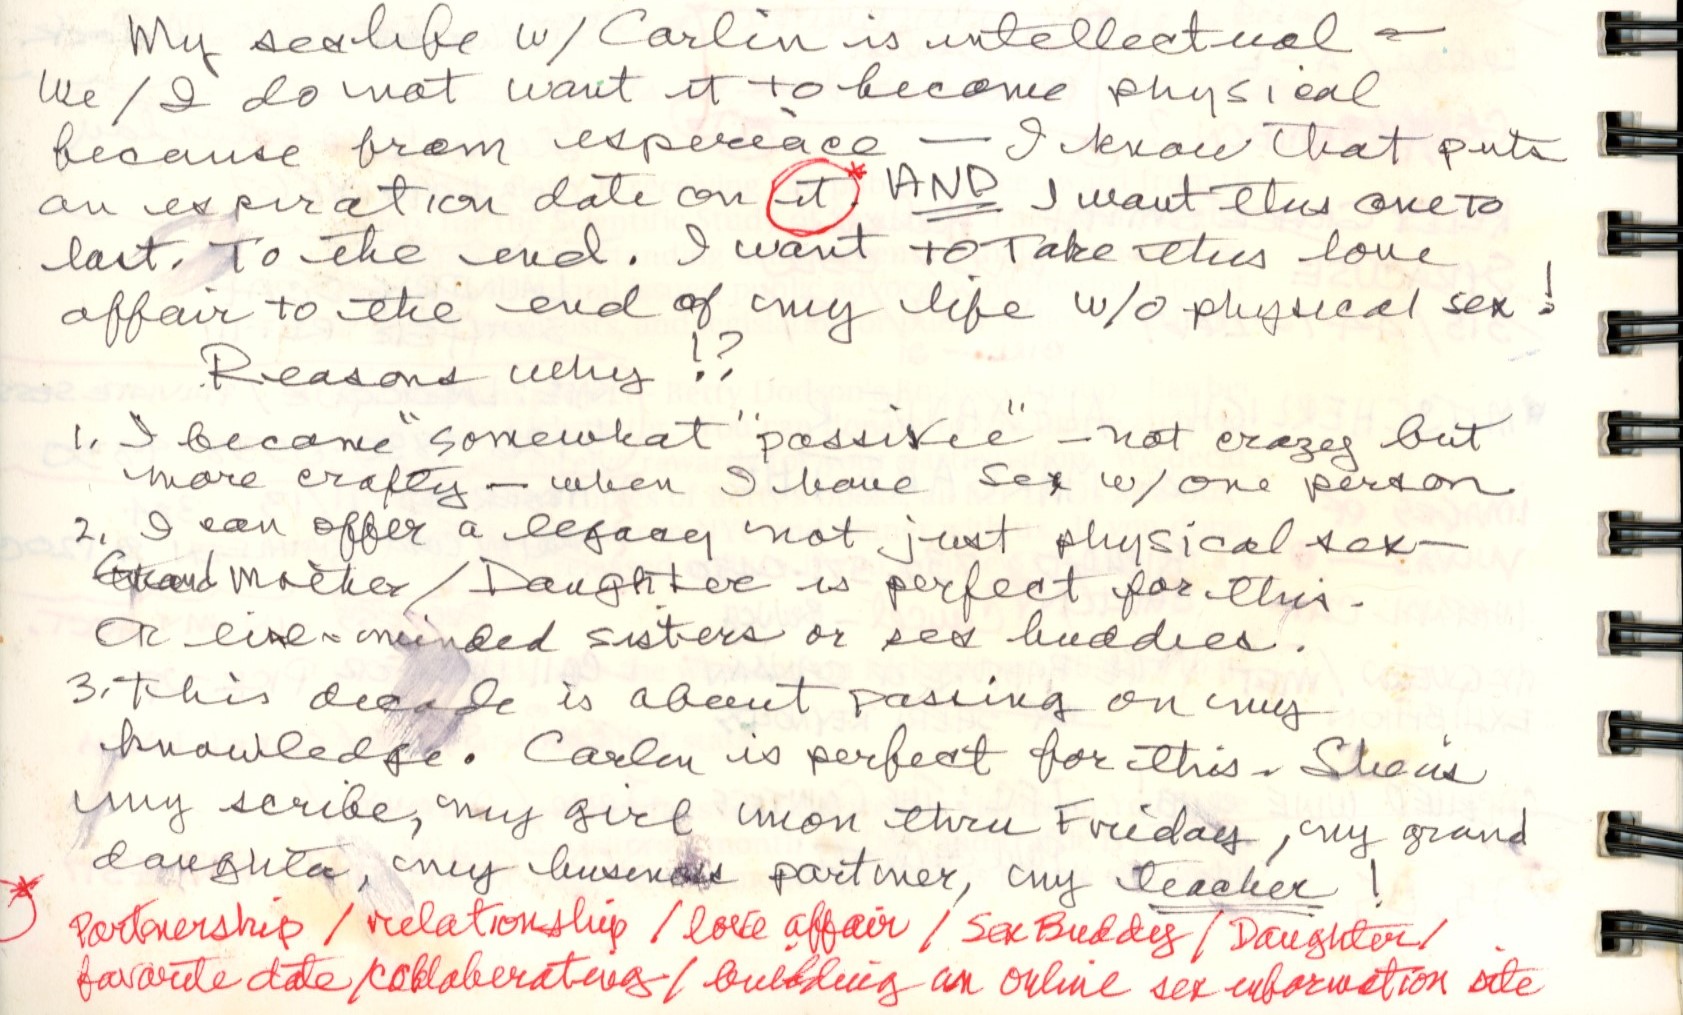 My sexlife w/ Carlin is intellectual –
We / I do not want it to become physical
because from experience — I know that puts
an expiration date on it.* AND I want this one to
last. To the end. I want to take this love
affair to the end of my life w/o physical sex!
Reasons why!?
1. I become "somewhat" "possisive" – not crazy but
more crafty – when I have sex w/ one person
2. I can offer a legacy not just physical sex –
Grand Mother / Daughter is perfect for this.
Or like-minded sisters or sex buddies.
3. This decade is about passing on my
knowledge. Carlin is perfect for this. She is
my scribe, my girl mon thru Friday, my grand
daughter, my business partner, my teacher!
* Partnership / relationship / love affair / Sex Buddy / Daughter /
favorite date / collaberating / building an online sex information site